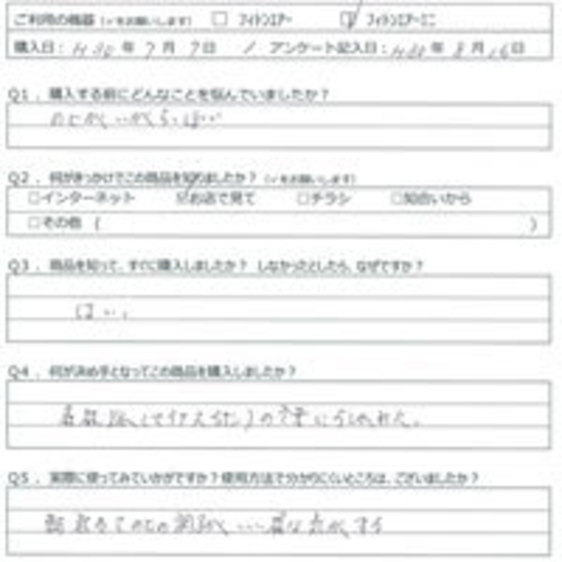 ご利用の機器（✓をお願いします） □ フィトンエアー ☑ フィトンエアーミニ
購入日：H30年7月7日 ／ アンケート記入日：H30年8月16日
Q1．購入する前にどんなことを悩んでいましたか？
のどがいがらっぽい
Q2．何がきっかけでこの商品を知りましたか？（✓をお願いします）
□インターネット ☑お店で見て □チラシ □知合いから
□その他（ ）
Q3．商品を知って、すぐに購入しましたか？ しなかったとしたら、なぜですか？
はい。
Q4．何が決め手となってこの商品を購入しましたか？
Q5．実際に使ってみていかがですか？使用方法で分かりにくいところは、ございましたか？
朝起きてのどの調子がいい様な気がする